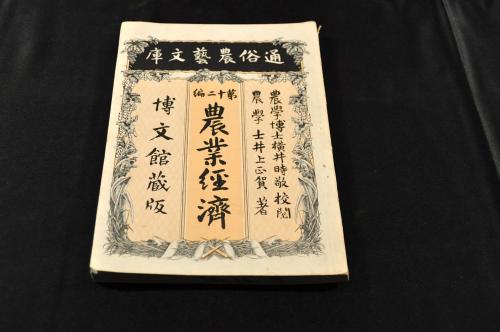 通俗農藝文庫
農學博士橫井時敬校閲
農學士井上正賀著
第十二編
農業經濟
博文館藏版